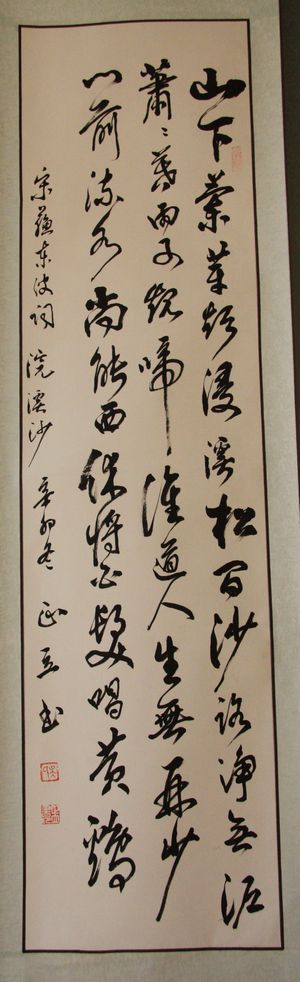 山下蘭芽短浸溪松間沙路淨無泥
蕭〻暮雨子規啼誰道人生無再少
門前流水尚能西休將白髮唱黃鷄
宋蘇東坡詞 浣溪沙 辛卯冬 書